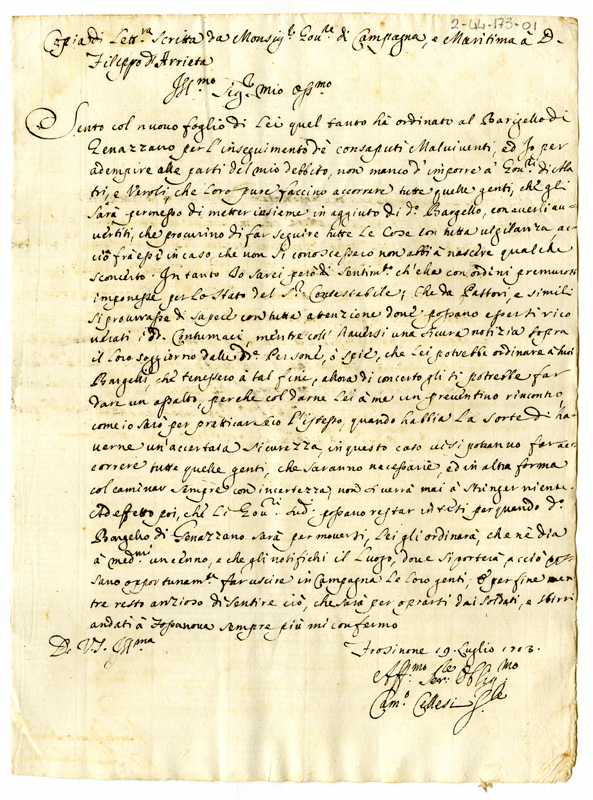 2-44-173-01
Copia di Lett.ra Scritta da Monsig.r Gov.re di Campagna, e Maritima à D.
Filippo d'Arrieta
Ill.mo Sig.r mio Oss.mo
Sento col nuovo foglio di Lei quel tanto hà ordinato al Barigello di
Genazzano per l'inseguimento de consaputi Malviventi, ed Io per
adempire alle parti del mio debbito, non manco d'imporre a' Gov.ri di Ala
tri, e Veroli, che loro pure faccino accorrere tutte quelle genti, che gli
sarà permesso di metter insieme in aggiuto di d.o Bargello, con averli av
vertiti, che procurino di far seguire tutte le cose con tutta vigilanza ac
ciò frà essi in caso, che non si conoscessero non abbia nascere qualche
sconcerto. In tanto Io sarei però di sentim.to ch'ella con ordini premurosi
imponesse per lo Stato del S.r Contestabile, che da Fattori, e simili
si procurasse di sapere con tutta attenzione dove possano essersi rico
verati i dd. Contumaci, mentre coll' haversi una sicura notizia sopra
il loro soggiorno dalle dd.e Persone, ò spie, che Lei potrebbe ordinare a' suoi
Bargelli, che tenessero à tal fine, allora di concerto gli si potrebbe far
dare un assalto, perche col darne Lei à me un preventivo rincontro,
come io farò per pratticar seco l'istesso, quando habbia la sorte di ha
verne un'accertata sicurezza, in questo caso vi si potranno far ac
correre tutte quelle genti, che saranno necessarie, ed in altra forma
col caminar sempre con incertezza, non si verrà mai à stringer niente.
Ad effetto poi, che li Gov.ri sud.i possano restar intesi per quando d.o
Bargello di Genazzano sarà per moversi, Lei gli ordinarà, che ne dia
à med.mi un cenno, e che gli notifichi il luogo, dove si porterà acciò pos
sano opportunam.te far uscire in Campagna le loro genti; E per fine men
tre resto anzioso di sentire ciò, che sarà per oprarsi dai soldati, e sbirri
andati à Fossanova sempre più mi confermo
De V.S. Ill.ma
Frosinone 19. Luglio 1703.
Aff.mo Ser.re Oblig.mo
Cam.o Cellesi